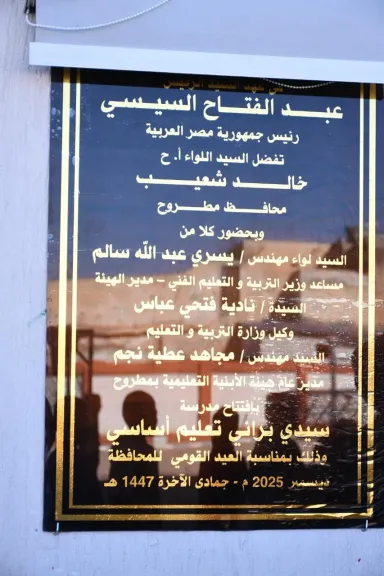 في عهد السيد الرئيس
عبد الفتاح السيسي
رئيس جمهورية مصر العربية
تفضل السيد اللواء أ. ح
خالد شعيب
محافظ مطروح
وبحضور كلا من
السيد لواء مهندس / يسري عبد الله سالم
مساعد وزير التربية و التعليم الفني - مدير الهيئة
السيدة / نادية فتحي عباس
وكيل وزارة التربية و التعليم
السيد مهندس / مجاهد عطية نجم
مدير عام هيئة الأبنية التعليمية بمطروح
بإفتتاح مدرسة
سيدي براني تعليم أساسي
وذلك بمناسبة العيد القومي للمحافظة
ديسمبر 2025 م - جمادى الآخرة 1447 هـ